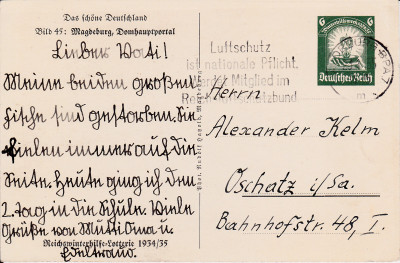 Das schöne Deutschland
Bild 45: Magdeburg, Domhauptportal
Lieber Vati!
Meine beiden großen
Fische sind gestorben. Sie
fielen immer auf die
Seite. Heute ging ich den
2. Tag in die Schule. Viele
Grüße von Mutti Oma u.
Edeltraud.
Reichswinterhilfe-Lotterie 1934/35
Luftschutz
ist nationale Pflicht.
Werdet Mitglied im
Reichsluftschutzbund
6 6
Deutsches Reich
Herrn
Alexander Kelm
Oschatz i/Sa.
Bahnhofstr. 48, I.